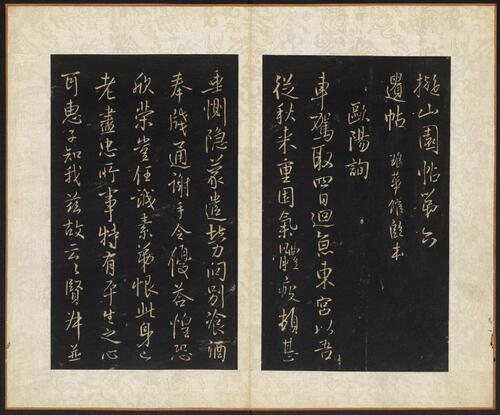 擬山園帖第六
遺帖 琅華館本
歐陽詢
車駕取四日迴京東宮以吾
從秋來重困氣體疲頓甚
垂惻隱蒙遣勞問別飡酒
奉牋通謝手令優荅惶恐
欣榮豈任誠素第恨此身已
老盡忠所事特有平生之心
耳惠子知我茲故云云賢並